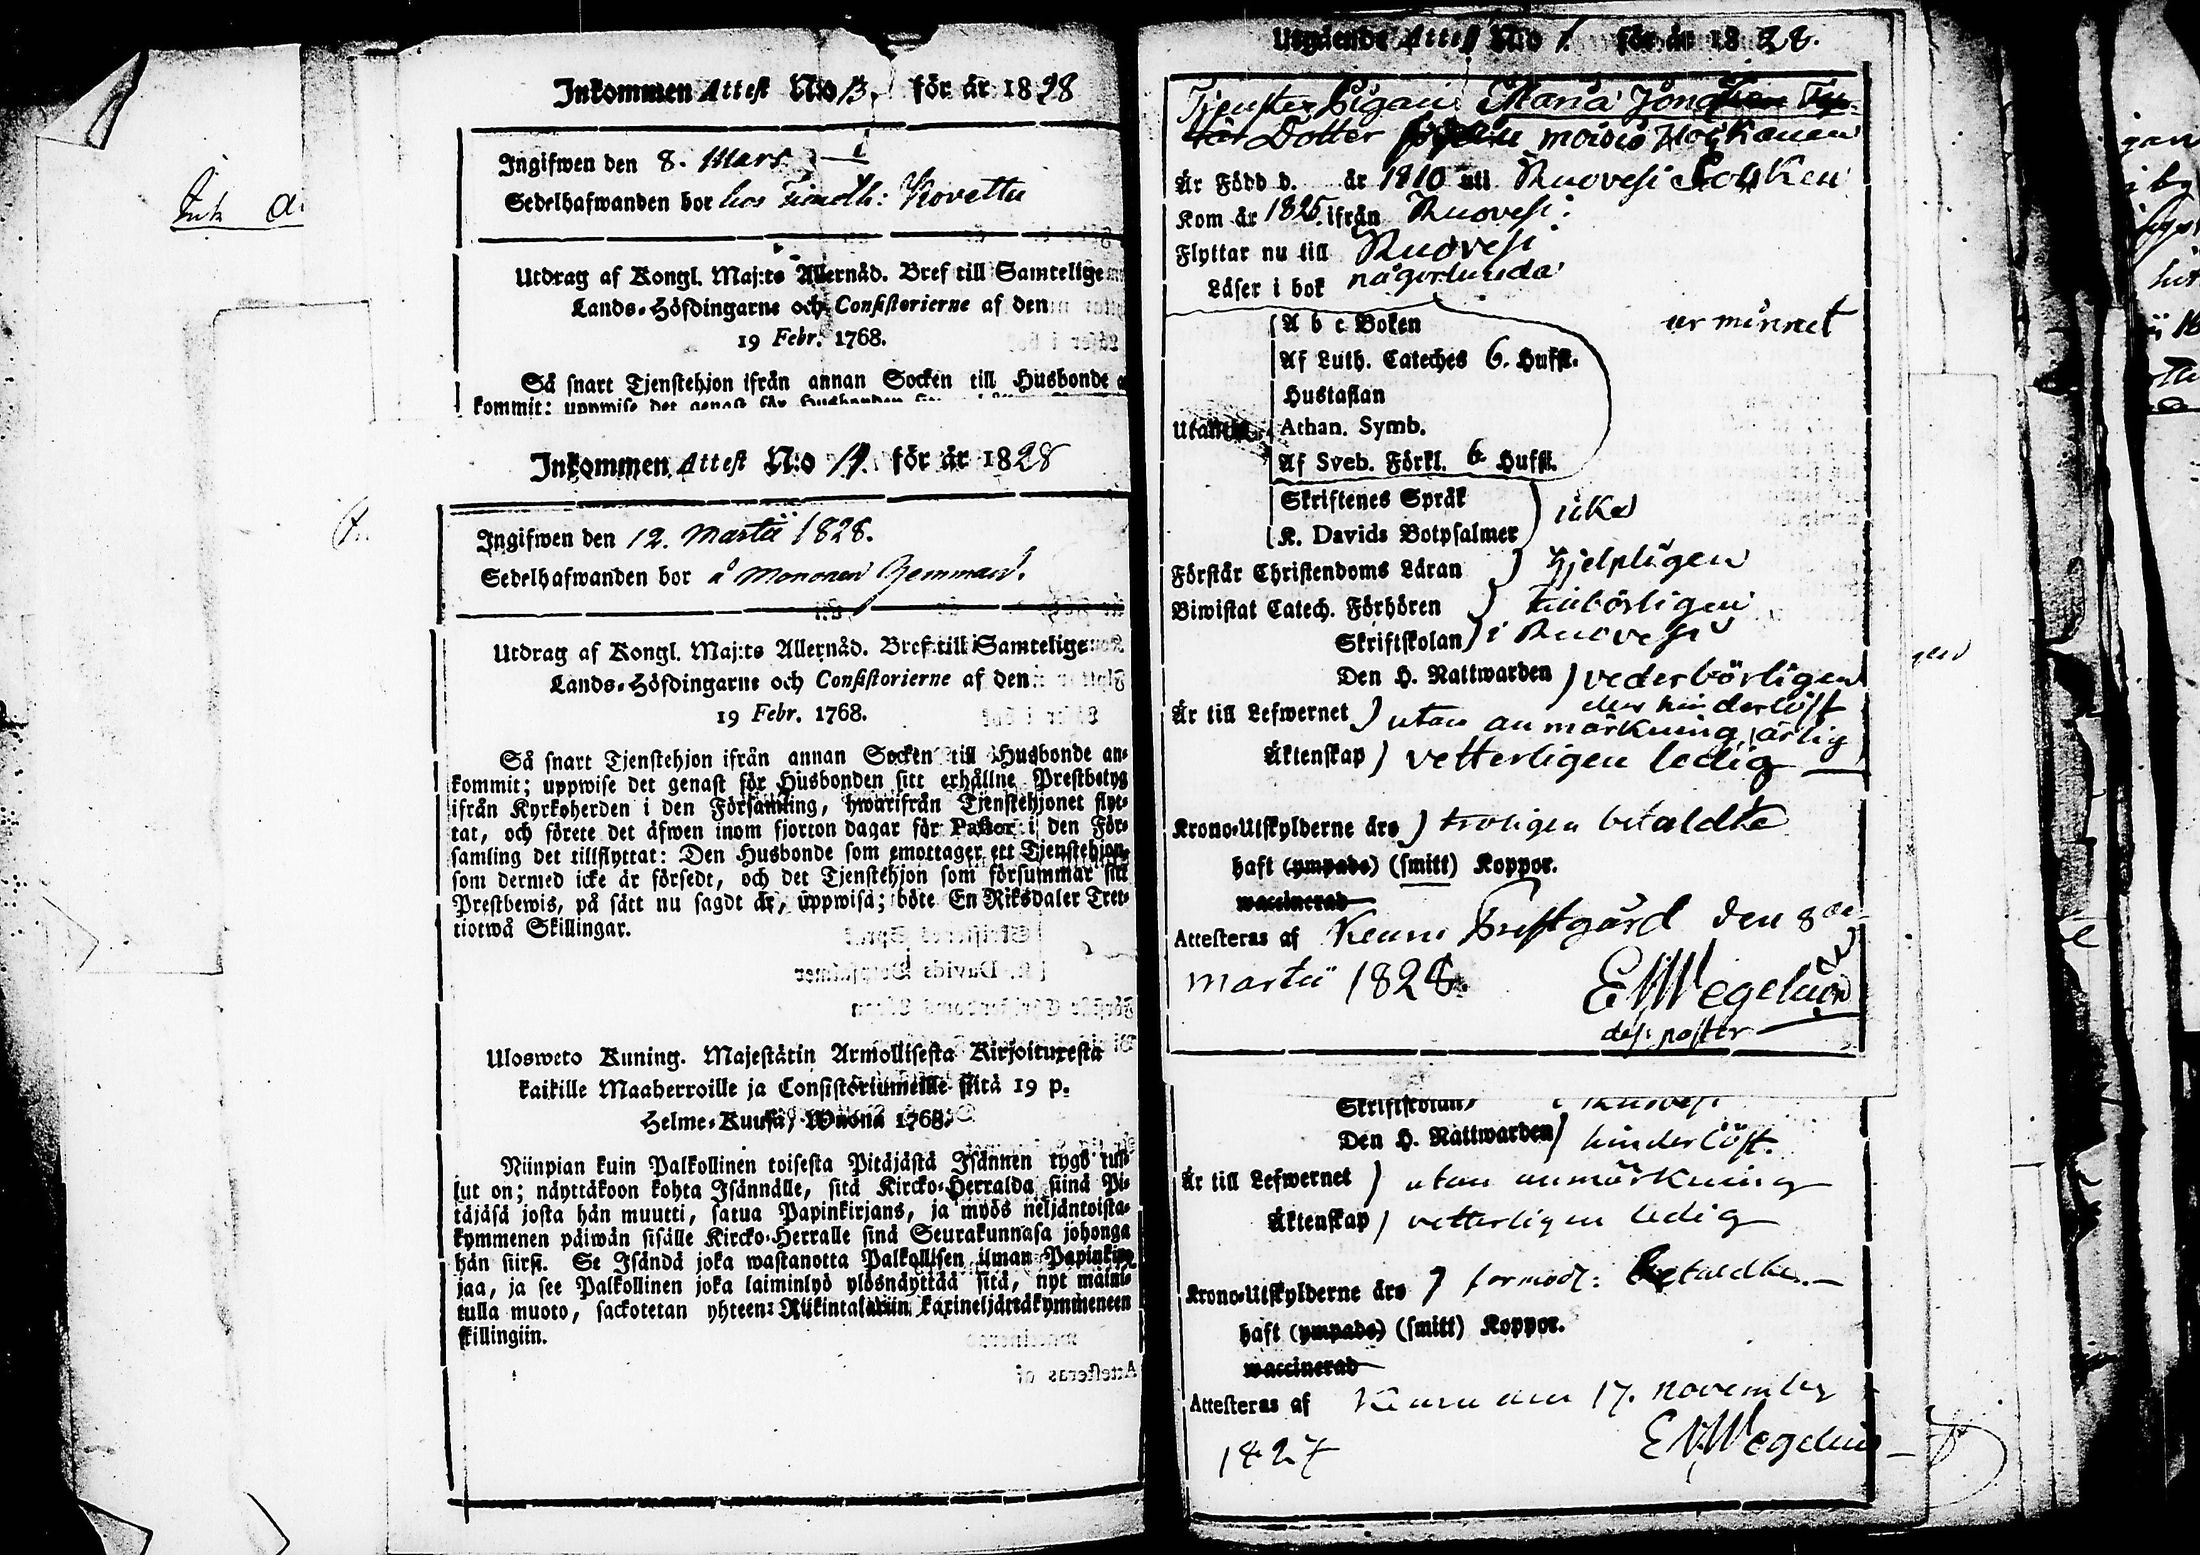 Ink
Inkommen Attest N:o 13. för år 1828
Ingifwen den 8. Mars
Sedelhafwanden bor hos Timoth: Kovettu
Utdrag af Kongl. Maj:ts Allernåd. Bref till Samtelige
Lands-Höfdingarne och Consistorierne af den
19 Febr. 1768.
Så snart Tjenstehjon ifrån annan Socken till Husbonde
kommit; uppwise det genast för Husbonden
Inkommen Attest N:o för år 1828
Ingifwen den 12. Martii 1828.
Sedelhafwanden bor å Mononen Hemman.
Utdrag af Kongl. Maj:ts Allernåd. Bref till Samtelige
Lands-Höfdingarne och Consistorierne af den
19 Febr. 1768.
Så snart Tjenstehjon ifrån annan Socken till Husbonde an-
kommit; uppwise det genast för Husbonden sitt erhållne Prestbetyg
ifrån Kyrkoherden i den Församling, hwarifrån Tjenstehjonet flyt-
tat, och förete det äfwen inom fjorton dagar för Pastor i den För-
samling det tillflyttat: Den Husbonde som emottager ett Tjenstehjon,
som dermed icke är försedt, och det Tjenstehjon som försummar sitt
Prestbewis, på sätt nu sagdt är, uppwisa; böte En Riksdaler Tret-
tiotwå Skillingar.
Ulosweto Kuning. Majestätin Armollisesta Kirjoituxesta
kaikille Maaherroille ja Consistoriumeille siitä 19 p.
Helme-Kuusa, Wuona 1768.
Niinpian kuin Palkollinen toisesta Pitäjästä Isännen tygö tul-
lut on; näyttäkoon kohta Isännälle, sitä Kircko-Herralda siinä Pi-
täjäsä josta hän muutti, saatua Papinkirjans, ja myös neljäntoista-
kymmenen päiwän sisälle Kircko-Herralle siinä Seurakunnasa johonga
hän siirsi. Se Isändä joka wastanotta Palkollisen ilman Papinkir-
jaa, ja see Palkollinen joka laiminlyö ylösnäyttää sitä, nyt maini-
tulla muoto, sackotetan yhteen: Riikintalariin kaxineljättäkymmeneen
skillingiin.
Utgående Attest N:o 1 för år 1828.
Tjenste Pigan Maria
Dotter
Är Född d. år 1810 uti Ruovesi Socken
Kom år 1825 ifrån Ruovesi.
Flyttar nu till Ruovesi
Läser i bok någorlunda
A b c Boken ur minnet
Af Luth. Cateches 6. Hufst.
Hustaflan
Utantill Athan. Symb.
Af Sveb. Förkl. 6 Hufst.
Skriftenes Språk
K. Davids Botpsalmer icke
Förstår Christendoms Läran hjelpligen
Biwistat Catech. Förhören
Skriftskolan i Ruovesi
Den H. Nattwarden vederbörligen
hinderlöst
Är till Lefwernet utan anmärkning, ärlig
Äktenskap vetterligen ledig
Krono-Utskylderne äro troligen betaldte
haft (ympade) (smitt) Koppor.
waccinerad
Attesteras af Keuru Prestgård den 8de
Martii 1828.
E W Wegelius
Skriftskolan i Ruovesi
Den H. Nattwarden hinderlöst.
Är till Lefwernet utan anmärkning
Äktenskap vetterligen ledig
Krono-Utskylderne äro förmodl: betaldte.
haft (ympade) (smitt) Koppor.
waccinerad
Attesteras af Keuru den 17. November
1827
Wegelius